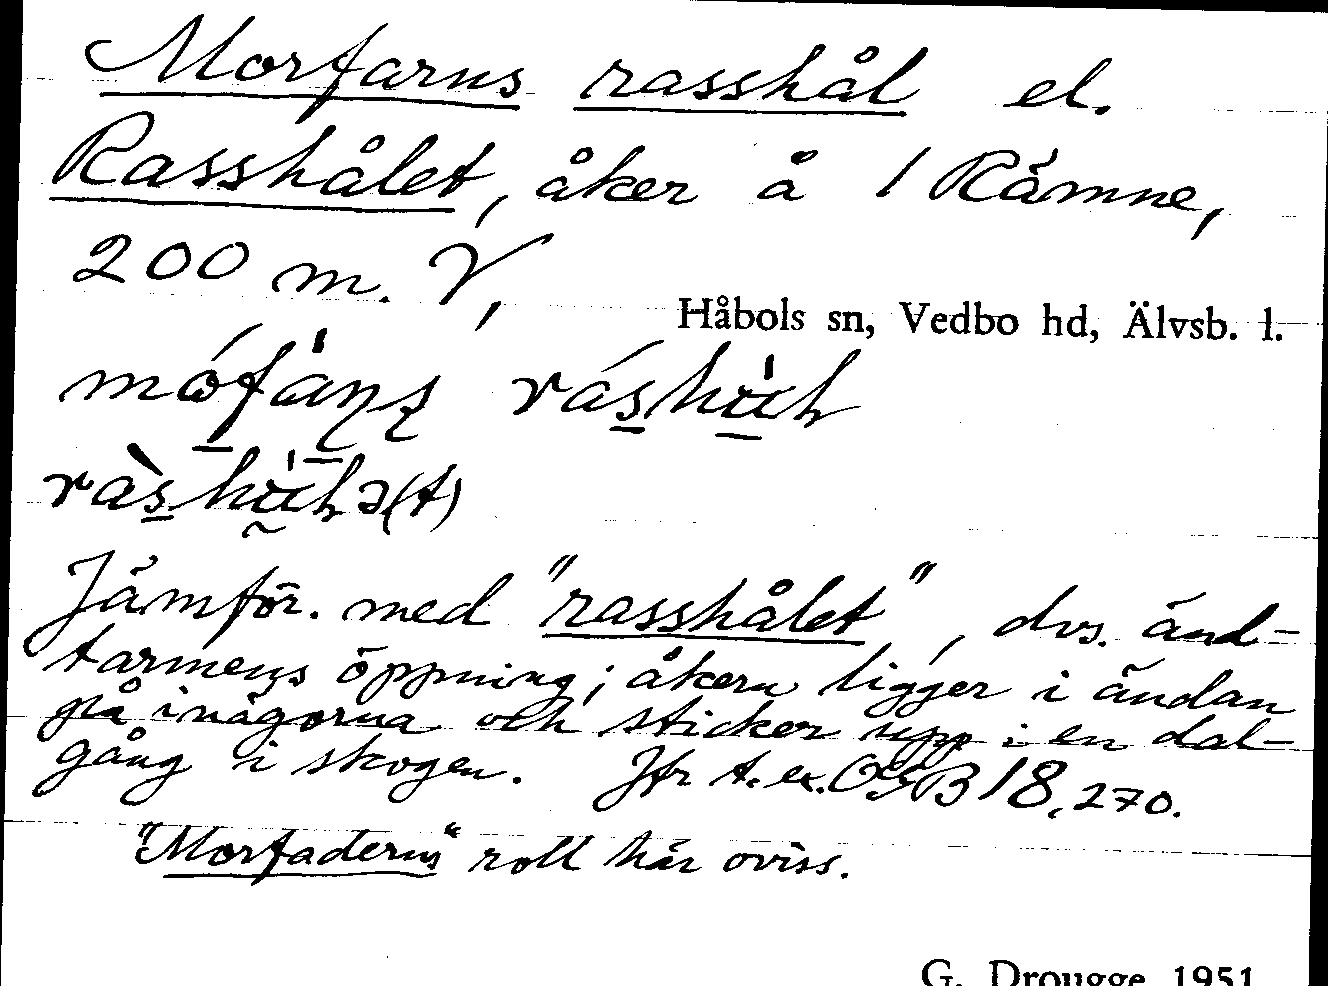 Morfarns rasshål el.
Rasshålet, åker å 1 Rämne,
200 m. V,
Håbols sn, Vedbo hd, Älvsb. l.
Jämför. med "rasshålet", dvs. änd-
tarmens öppning; åkern ligger i ändan
på inägorna och sticker upp i en dal-
gång i skogen. Jfr t. ex. OGB 18, 270.
"Morfaderns" roll här oviss.
G. Drougge 1951